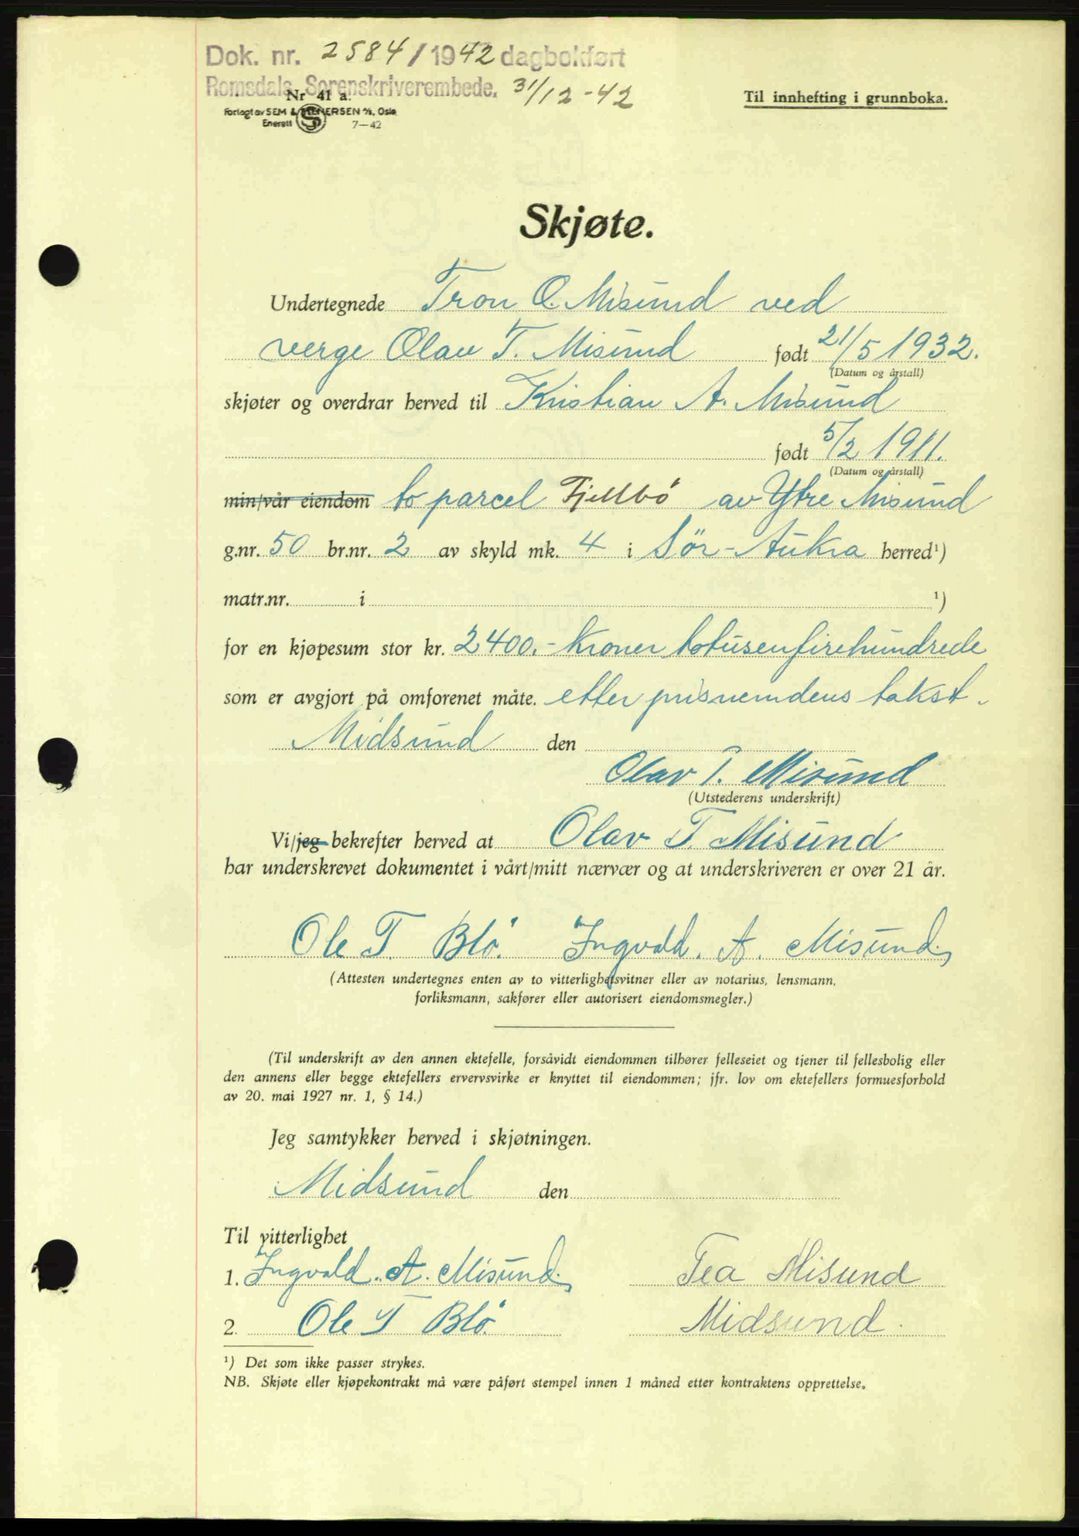 Dok. nr. 2584/1942 dagbokført
Romsdals Sorenskriverembede. 31/12-42
Nr 41 a.
Forlagt av SEM & STENERSEN A/S, Oslo
Enerett 7—42
Til innhefting i grunnboka.
Skjøte.
Undertegnede Tron O. Misund ved
verge Olav T. Misund født 21/5 1932.
(Datum og årstall)
skjøter og overdrar herved til Kristian A. Misund
født 5/2 1911.
(Datum og årstall)
min/vår eiendom to parcel Fjellbø av Ytre Misund
g.nr. 50 br.nr. 2 av skyld mk. 4 i Sør-Aukra herred¹)
matr.nr. i ¹)
for en kjøpesum stor kr. 2400.- Kroner totusenfirehundrede
som er avgjort på omforenet måte. etter prisnemdens takst.
Midsund den
Olav T. Misund
(Utstederens underskrift)
Vi/jeg bekrefter herved at Olav T. Misund
har underskrevet dokumentet i vårt/mitt nærvær og at underskriveren er over 21 år.
Ole T Blø. Ingvald. A. Misund.
(Attesten undertegnes enten av to vitterlighetsvitner eller av notarius, lensmann,
forliksmann, sakfører eller autorisert eiendomsmegler.)
(Til underskrift av den annen ektefelle, forsåvidt eiendommen tilhører felleseiet og tjener til fellesbolig eller
den annens eller begge ektefellers ervervsvirke er knyttet til eiendommen; jfr. lov om ektefellers formuesforhold
av 20. mai 1927 nr. 1, § 14.)
Jeg samtykker herved i skjøtningen.
Midsund den
Til vitterlighet
1. Ingvald. A. Misund. Tea Misund
2. Ole T Blø. Midsund.
¹) Det som ikke passer strykes.
NB. Skjøte eller kjøpekontrakt må være påført stempel innen 1 måned etter kontraktens opprettelse.